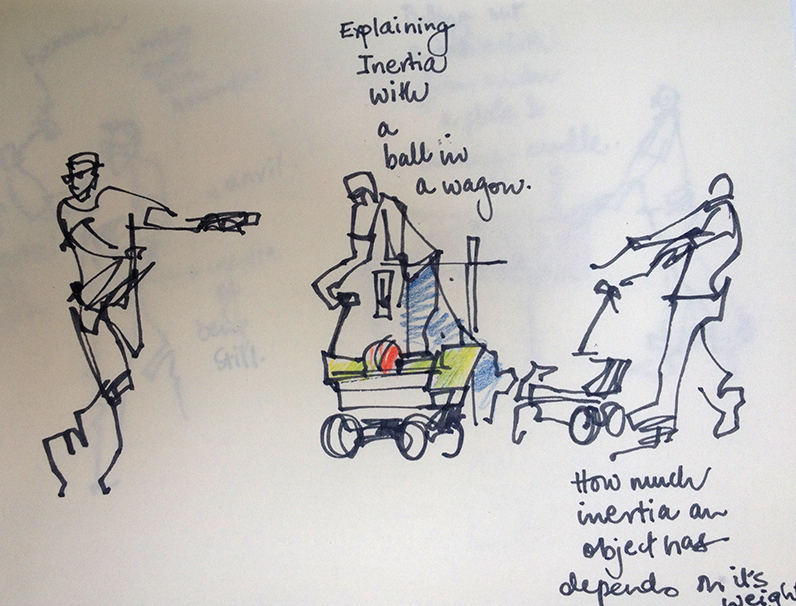 Explaining
Inertia
with
a
ball in
a wagon.
How much
inertia an
object has
depends on it's
weight
anvil.
being
still.